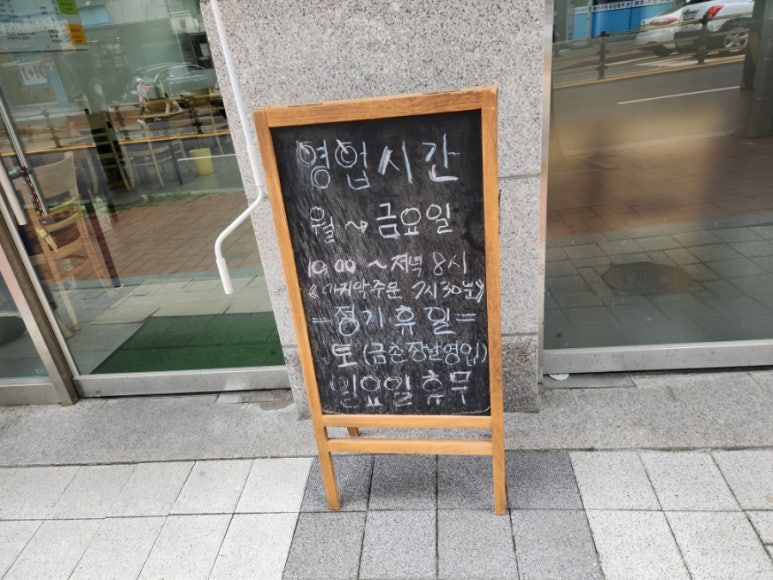 영업시간
월 ~ 금요일
10:00 ~ 저녁 8시
《마지막주문 7시30분》
= 정기휴일 =
토(금촌장날영업)
일요일휴무